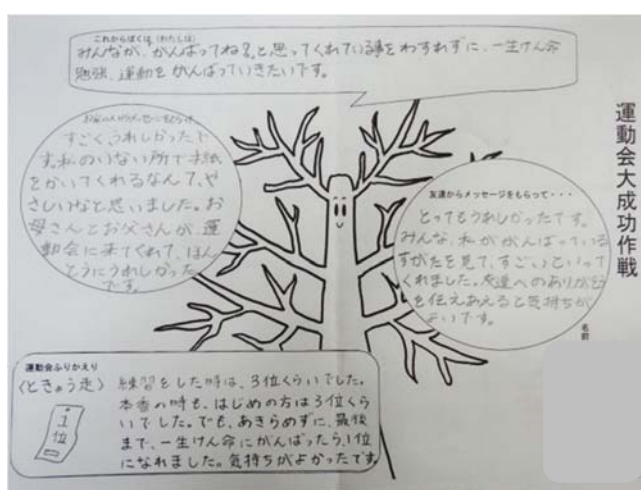 運動会大成功作戦
名前
これからぼくは(わたしは)
みんなが、がんばってね。と思ってくれている事をわすれずに、一生けん命
勉強、運動をがんばっていきたいです。
すごく、うれしかったで
す。私のいない所で手紙
をかいてくれるなんて、や
さしいなと思いました。お
母さんとお父さんが、運
動会に来てくれて、ほん
とうにうれしかった
です。
友達からメッセージをもらって・・・
とってもうれしかったです。
みんな、私ががんばっている
すがたを見て、すごいといって
くれました。友達へのありがとう
を伝えあえると気持ちが
よいです。
運動会ふりかえり
〈ときょう走〉
1
位
練習をした時は、3位くらいでした。
本番の時も、はじめの方は3位くら
いでした。でも、あきらめずに、最後
まで、一生けん命にがんばったら、1位
になれました。気持ちがよかったです。